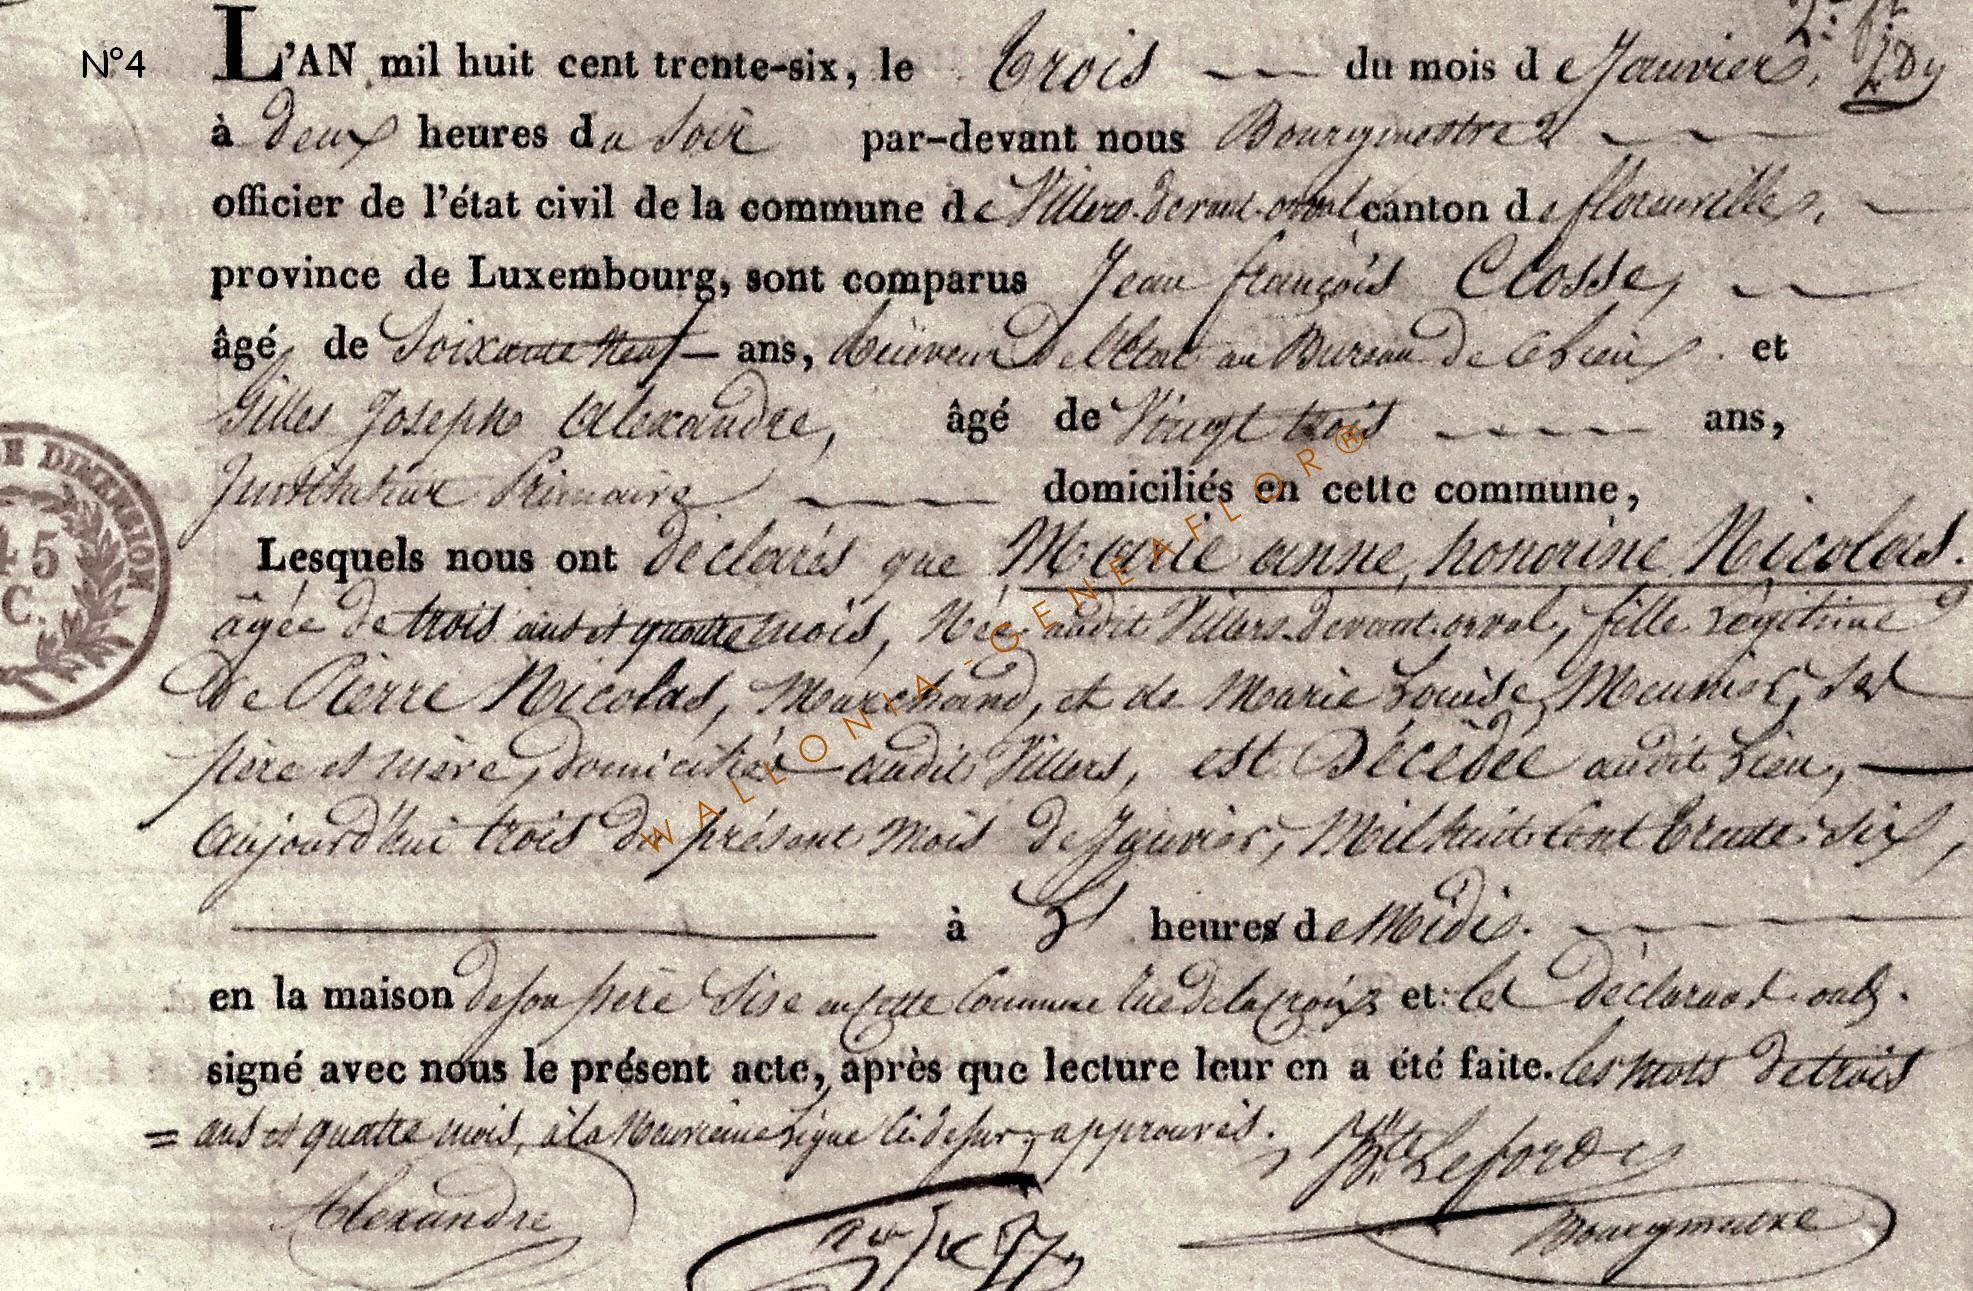 N°4
L'AN mil huit cent trente-six, le trois du mois de Janvier,
à deux heures du soir par-devant nous Bourgmestre
officier de l'état civil de la commune de Villers-devant-orval canton de florenville,
province de Luxembourg, sont comparus Jean françois Closse,
âgé de soixante neuf ans, Receveur de l'Etat au Bureau de et
Gilles Joseph Alexandre, âgé de Vingt trois ans,
Instituteur Primaire domiciliés en cette commune,
Lesquels nous ont déclarés que Marie anne, honorine Nicolas.
âgée de trois ans et quatre mois, Née audit Villers-devant-orval, fille légitime
de Pierre Nicolas, Marchand, et de Marie Louise Meunier, ses
père et mère, domiciliés audit Villers, est Décédée audit Lieu,
Aujourd'hui trois du présent Mois de Janvier, Mil huit Cent trente-six,
à heures de Midi.
en la maison de son père Sise en cette Commune rue de la croix et les déclarant ont
signé avec nous le présent acte, après que lecture leur en a été faite. les mots de trois
= ans et quatre mois, à la Neuvieme Ligne ci-desur, approuvés.
Alexandre
Leforde
Bourgmestre
WALLONIA-GENEAFLOR®
E DIMENSION
45
C.